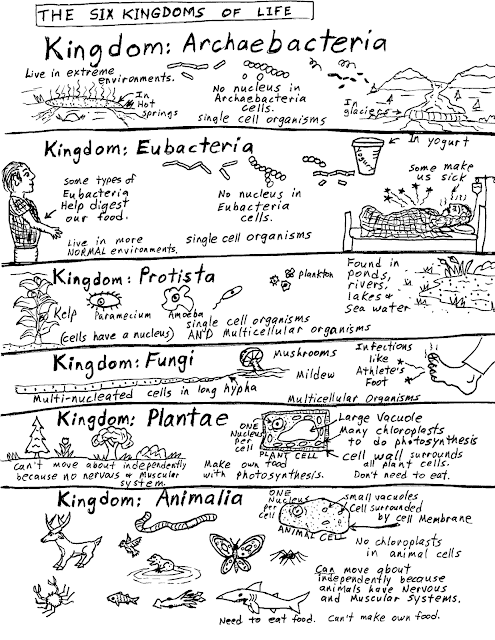 THE SIX KINGDOMS OF LIFE
Kingdom: Archaebacteria
Live in extreme
environments.
In
Hot
springs
No nucleus in
Archaebacteria
cells.
single cell organisms
In
glaciers
Kingdom: Eubacteria
In yogurt
YOGURT
some types of
Eubacteria
Help digest
our food.
No nucleus in
Eubacteria
cells.
Some make
us sick
Live in more
NORMAL environments.
single cell organisms
Kingdom: Protista
plankton
Found in
ponds,
rivers,
lakes &
Sea water
Kelp
Paramecium
Amoeba
single cell organisms
(cells have a nucleus) AND Multicellular organisms
Kingdom: Fungi
Mushrooms
Mildew
Infections
like
Athlete's
Foot
Multi-nucleated cells in long hypha
Multicellular Organisms
Kingdom: Plantae
ONE
Nucleus
per
cell
PLANT CELL
Large Vacuole
Many chloroplasts
to do photosynthesis
cell wall surrounds
all plant cells.
Don't need to eat.
Can't move about independently
because no nervous or Muscular
system.
Make own food
with photosynthesis.
Kingdom: Animalia
ONE
Nucleus
per
cell
ANIMAL CELL
small vacuoles
Cell surrounded
by cell Membrane
No chloroplasts
in animal cells
Can move about
independently because
animals have Nervous
and Muscular Systems.
Need to eat food. Can't make own food.